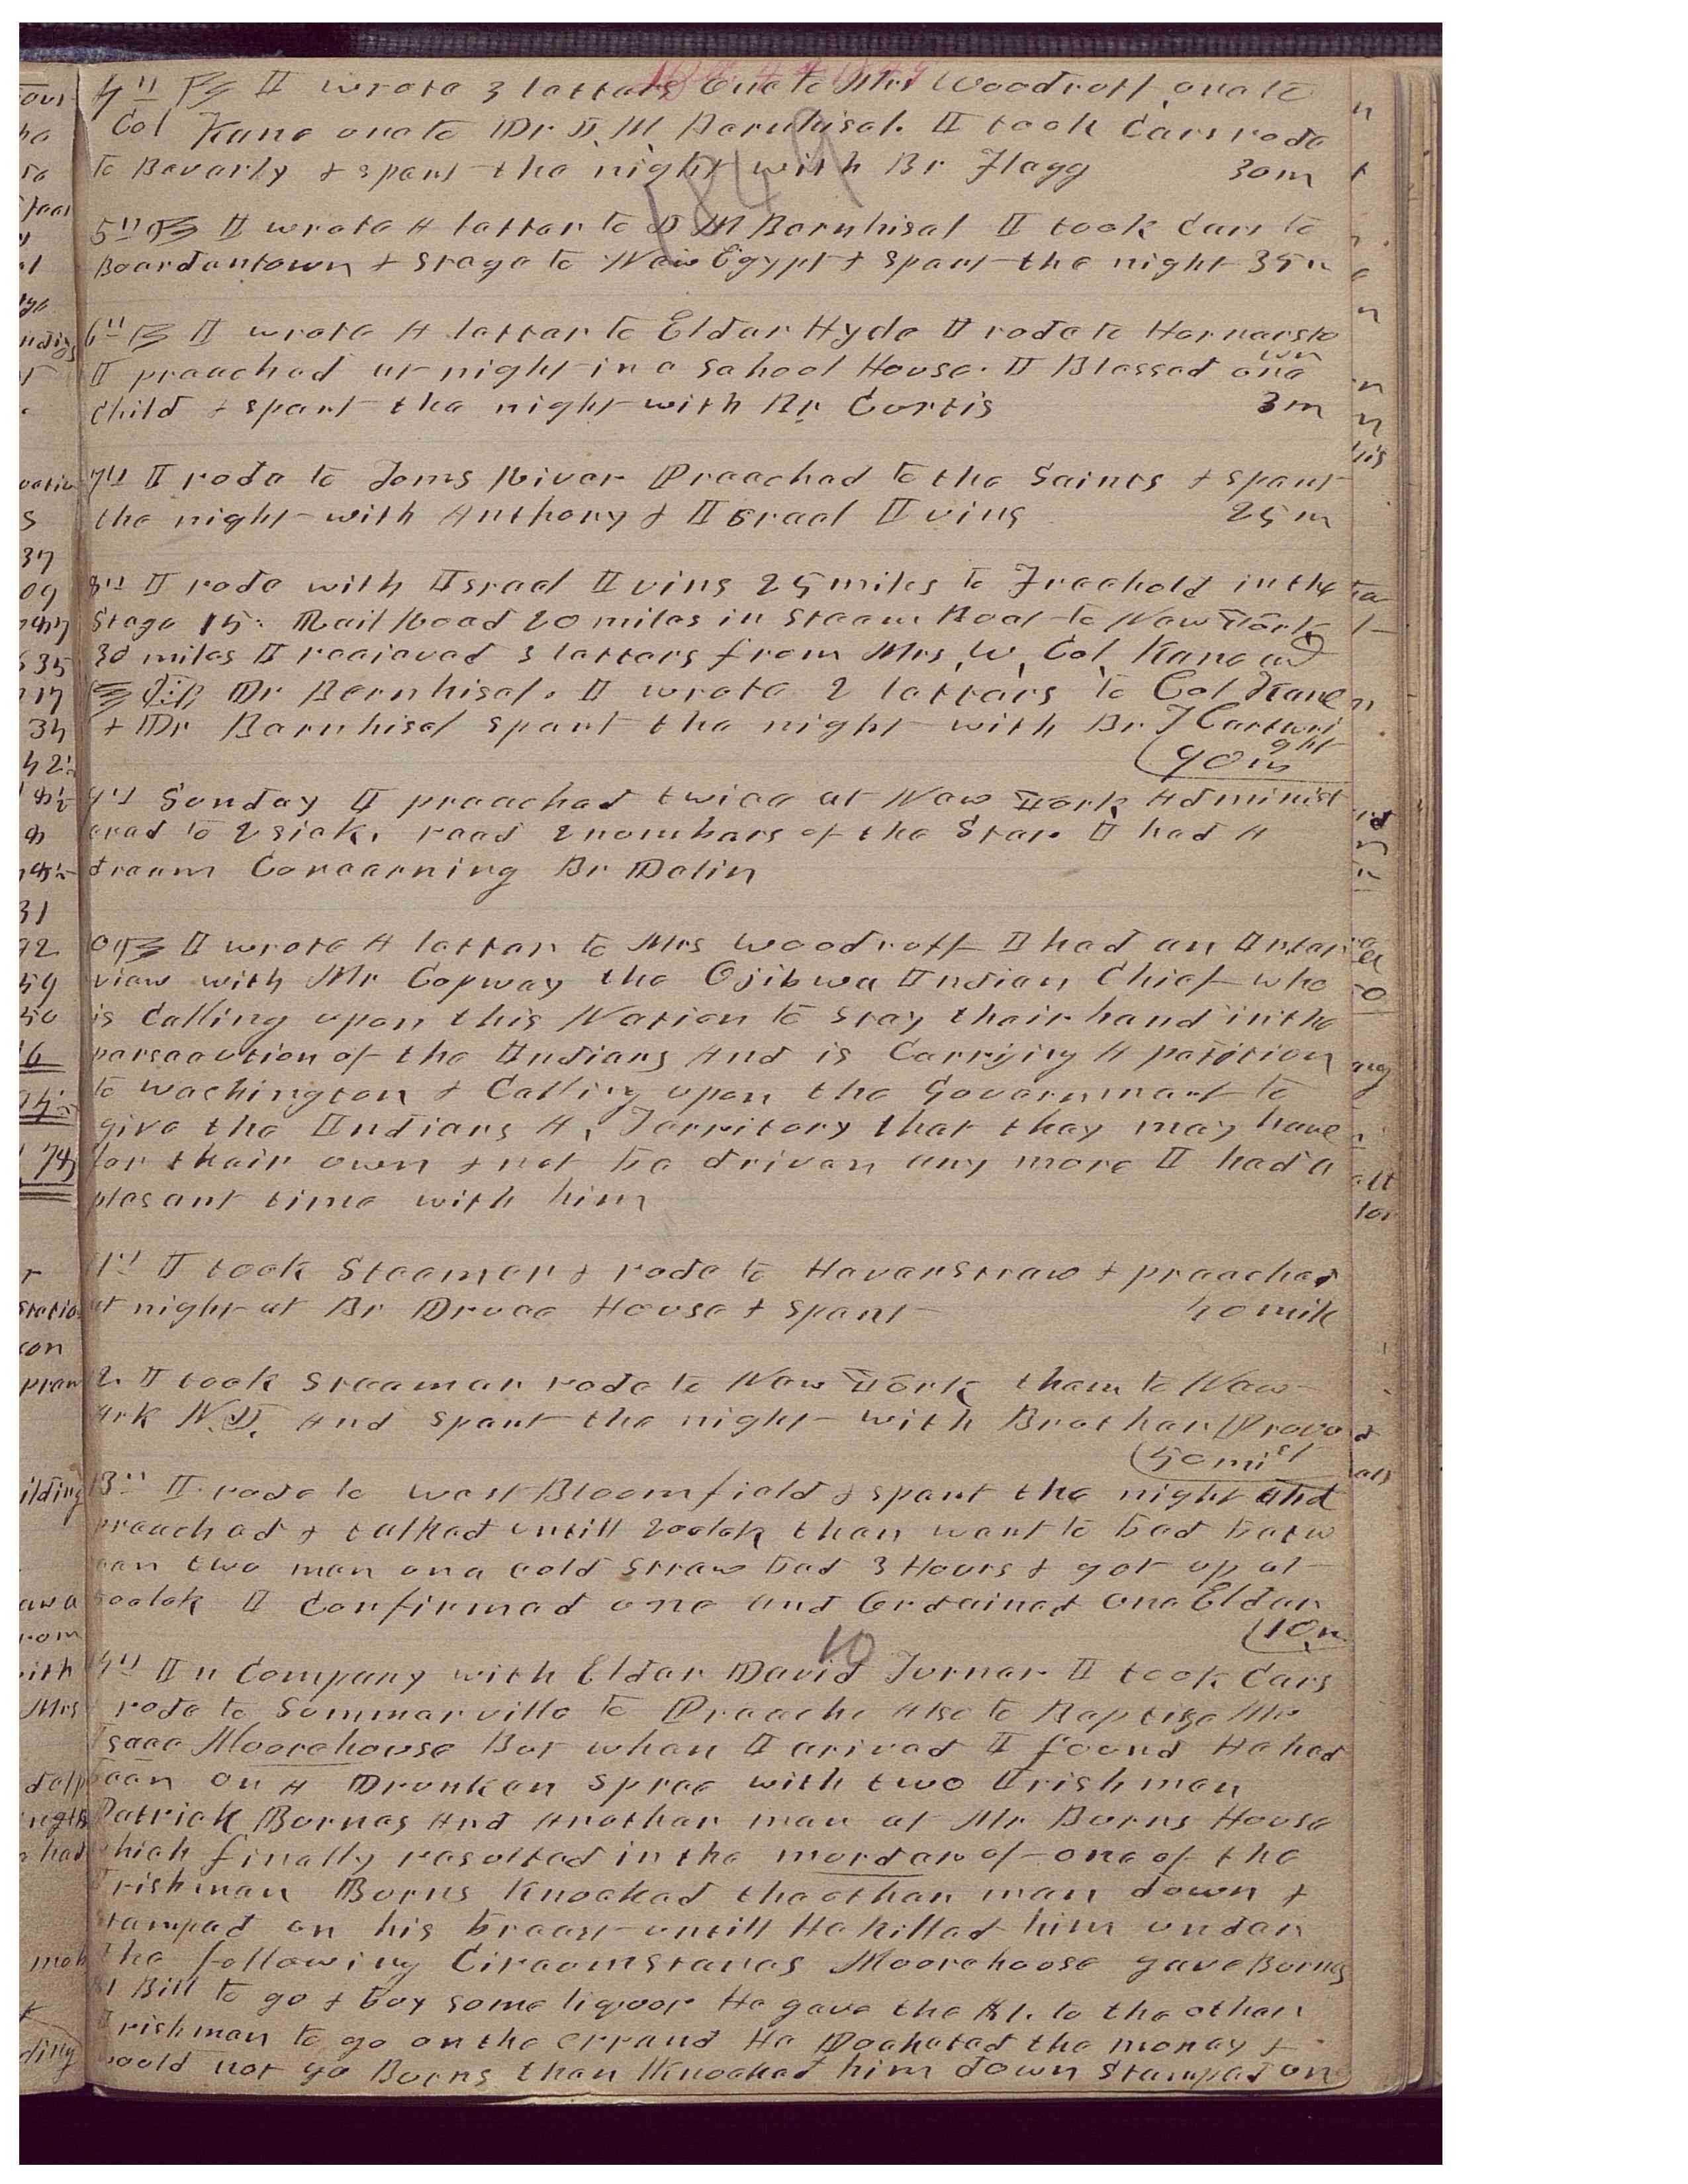 4th I wrote 3 letters one to Mrs Woodruff one to
Col Kane one to Dr J. M Bernhisel. I took cars rode
to Beverly & spent the night with Br Flagg 30m
1849
5th I wrote A letter to J M Bernhisel I took cars to
Boardentown & stage to New Egypt & spent the night 35m
6th I wrote A letter to Elder Hyde I rode to Hornersto
wn
I preached at night in a School House. I Blessed one
child & spent the night with Br Curtis 3m
7th I rode to Toms River Preached to the Saints & spent
the night with Anthony & Israel Ivins 25m
8th I rode with Israel Ivins 25 miles to Freehold in the
Stage 15. Rail Road 20 miles in Steam Boat to New York
30 miles I recieved 3 letters from Mrs W, Col, Kane and
Dr Bernhisel. I wrote 2 letters to Col Kane
& Dr Barnhisel spent the night with Br J Cartwri
ght
90m
9th Sunday I preached twice at New York Administ
ered to 2 sick. read 2 numbers of the Star I had A
dream Concerning Br Dolin
0th I wrote A letter to Mrs Woodruff I had an Inter
view with Mr Copway the Ojibwa Indian Chief who
is Calling upon this Nation to stay their hand in the
persecution of the Indians And is Carrying A petition
to washington & Calling upon the Government to
give the Indians A, Territory that they may have
for their own & not be driven any more I had a
plesant time with him
11th I took Steamer & rode to Haverstraw & preached
at night at Br Druce House & spent 40 mile
2. I took Steamer rode to New York them to New
ark N.J. And spent the night with Brother Provo
50 mil
13th I rode to West Bloomfield & spent the night and
preached & talked untill 2 oclok then went to bed betw
een two men on a cold straw bed 3 Hours & got up at
oclok I Confirmed one and Ordained one Elder
10m
10
14th In Company with Elder David Turner I took Cars
& rode to Summerville to Preach Also to Baptize Mr
Isaac Moorehouse But when I arived I found He had
been on A Drunken Spree with two Irishmen
Patrick Burnes And Another man at Mr Burns House
which finally resulted in the murder of one of the
Irishman Burns Knocked the other man down &
stamped on his breast untill He killed him under
the following Circumstances Moorehouse gave Burns
$1 Bill to go & buy some liquor He gave the $1. to the other
Irishman to go on the errand He Pocketed the money &
would not go Burns then Knocked him down Stamped on